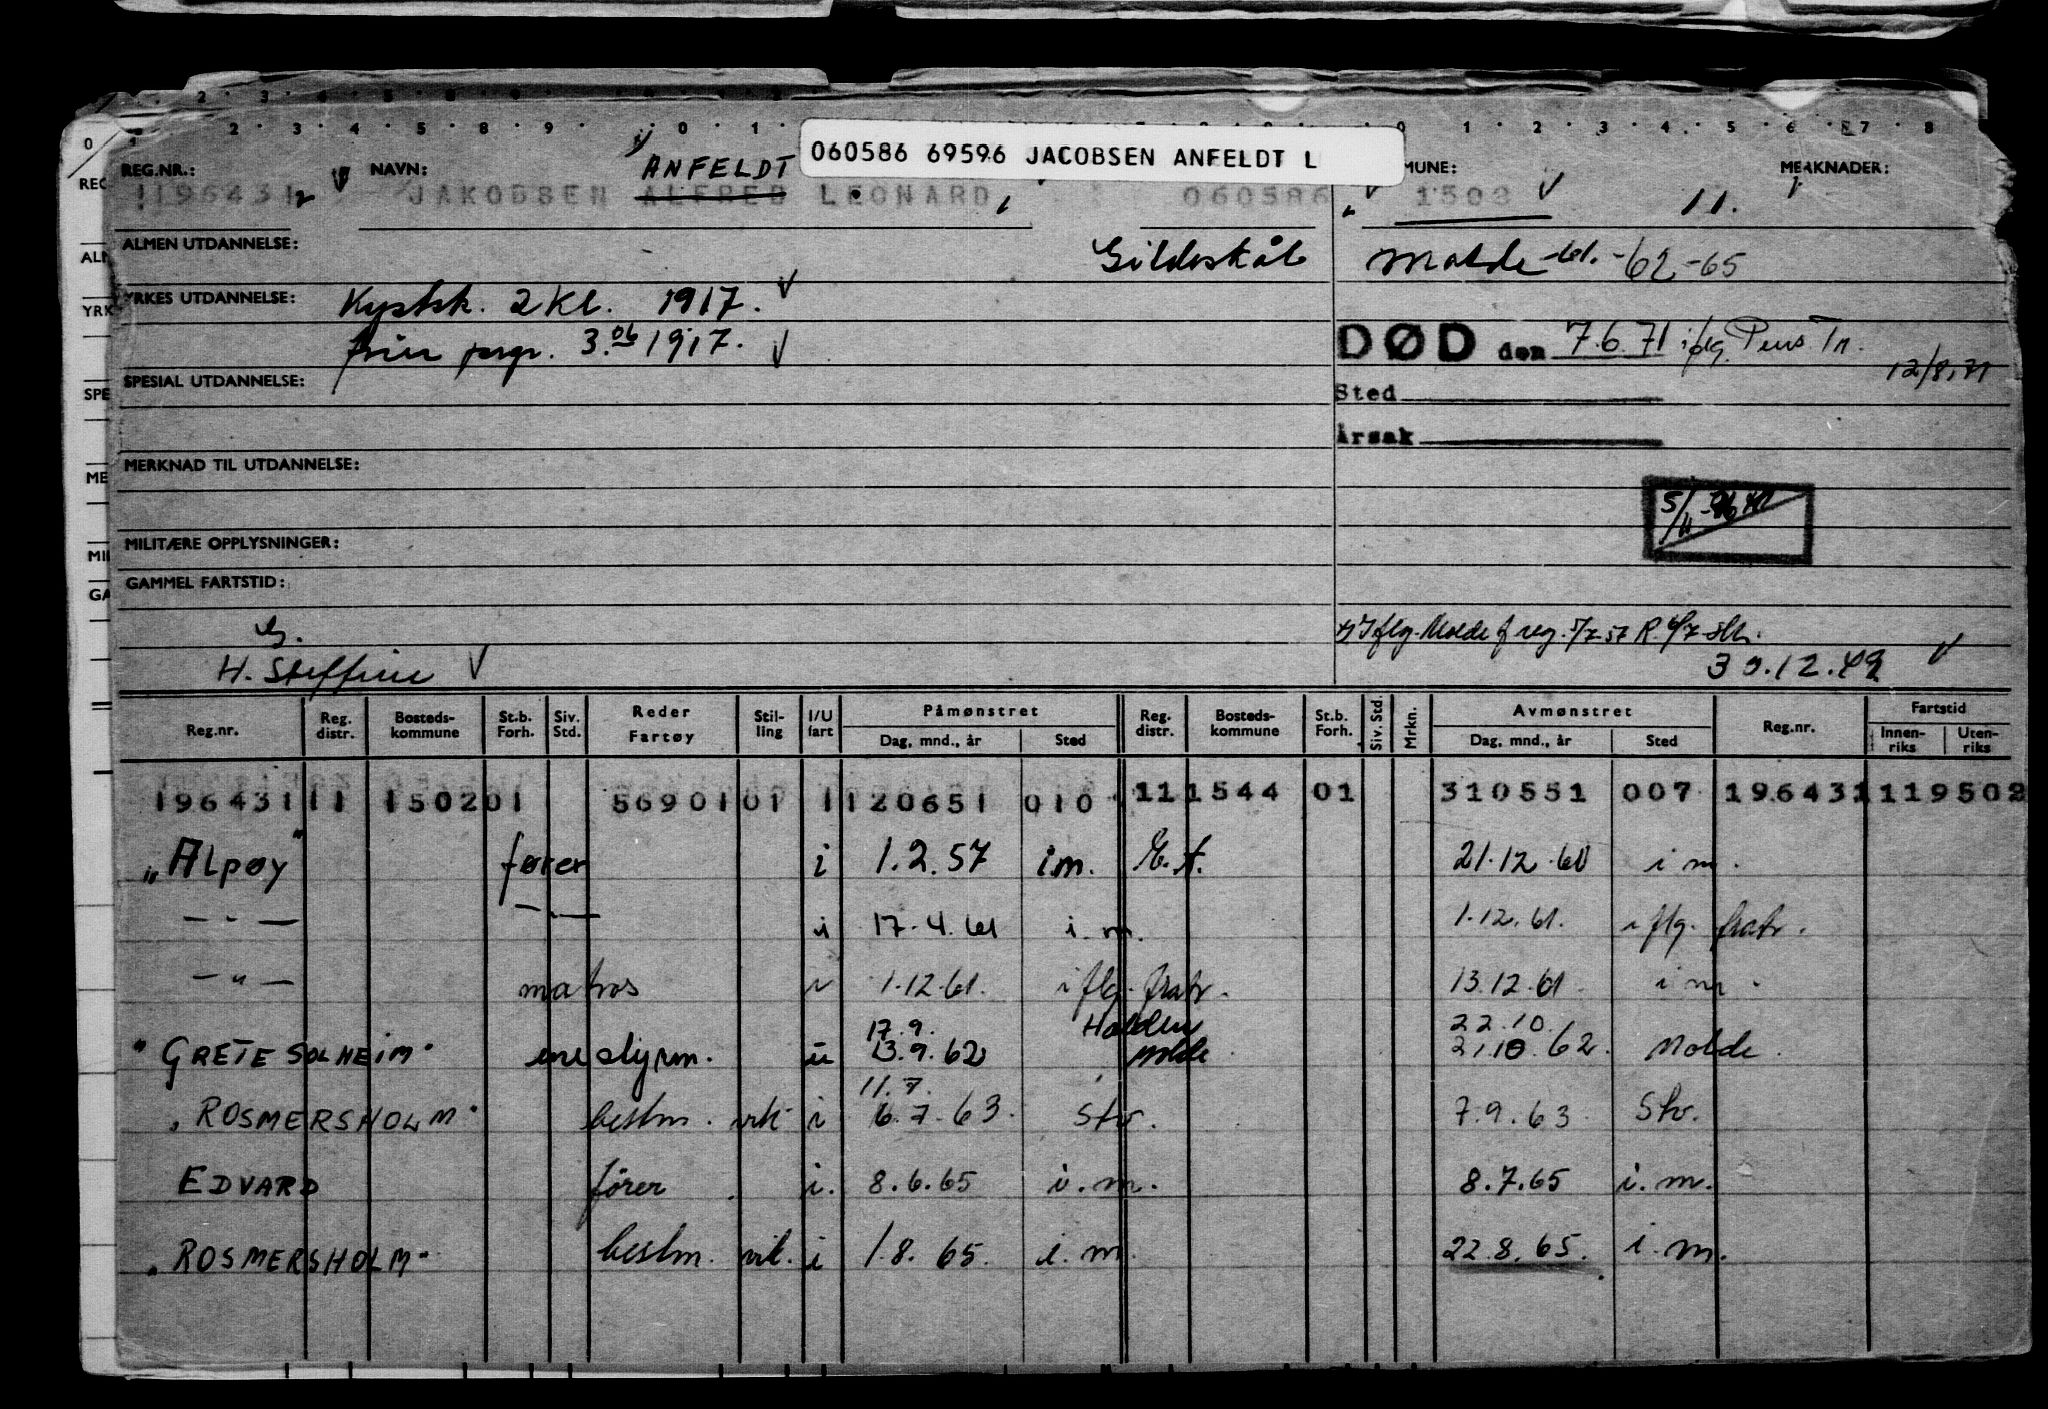 060586 69596 JACOBSEN ANFELDT L
REG.NR.: NAVN: ANFELDT MUNE: MERKNADER:
196431 JAKOBSEN ALFRED LEONARD 060586 1502 11.
ALMEN UTDANNELSE: Gildeskål Molde -61.-62-65
YRKES UTDANNELSE: Kystsk. 2 kl. 1917.
3. 1917. DØD den 7.6.71 iflg. Pens Tr.
12/8.71
SPESIAL UTDANNELSE: Sted
Årsak
MERKNAD TIL UTDANNELSE:
MILITÆRE OPPLYSNINGER:
GAMMEL FARTSTID:
G. Iflg. Molde
H. Steffine 30.12.49
Reg.nr. Reg. distr. Bosteds-kommune St.b. Forh. Siv. Std. Reder Fartøy Stil-ling I/U fart Påmønstret Dag, mnd., år Sted Reg. distr. Bosteds-kommune St.b. Forh. Siv. Std. Mrkn. Avmønstret Dag, mnd., år Sted Reg.nr. Fartstid Innen-riks Uten-riks
196431 11 1502 01 56901 01 1 120651 010 11 1544 01 310551 007 196431 119502
"ALPØY" fører i 1.2.57 i.m. 21.12.60 i m.
— " — — " — i 17.4.61 i.m. 1.12.61. iflg. fratr.
— " — matros i 1.12.61. iflg. fratr. 13.12.61 i m.
17.9. Halden 22.10.
"GRETE SOLHEIM" ene styrm. u 13.9.62 Molde 21.10.62. Molde.
11.7.
"ROSMERSHOLM" bestm. vik i 6.7.63. Stv. 7.9.63. Stv.
EDVARD fører i. 8.6.65 i.m. 8.7.65 i.m.
"ROSMERSHOLM" bestm. vik. i 1.8.65. i.m. 22.8.65. i.m.